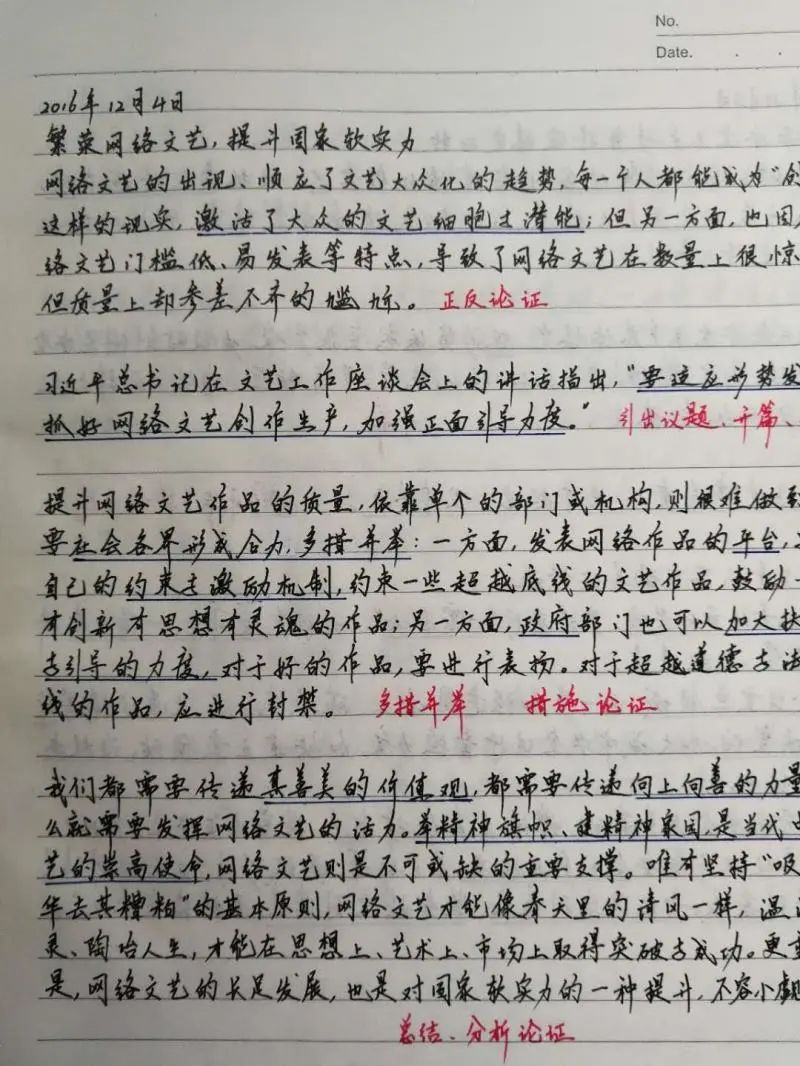 No.
Date. . .
2016年12月4日
繁荣网络文艺，提升国家软实力
网络文艺的出现、顺应了文艺大众化的趋势，每一个人都能成为“创
这样的现实，激活了大众的文艺细胞与潜能；但另一方面，也因
络文艺门槛低、易发表等特点，导致了网络文艺在数量上很惊
但质量上却参差不齐的尴尬。 正反论证
习近平总书记在文艺工作座谈会上的讲话指出，“要适应形势发
抓好网络文艺创作生产，加强正面引导力度。” 引出议题、开篇、
提升网络文艺作品的质量，依靠单个的部门或机构，则很难做到
要社会各界形成合力，多措并举：一方面，发表网络作品的平台，
自己的约束与激励机制，约束一些超越底线的文艺作品，鼓励
有创新有思想有灵魂的作品；另一方面，政府部门也可以加大扶
与引导的力度，对于好的作品，要进行表扬。对于超越道德与法
线的作品，应进行封禁。 多措并举 措施论证
我们都需要传递真善美的价值观，都需要传递向上向善的力量
么就需要发挥网络文艺的活力。举精神旗帜、建精神家园，是当代
艺的崇高使命，网络文艺则是不可或缺的重要支撑。唯有坚持“吸
华去其糟粕”的基本原则，网络文艺才能像春天里的清风一样，温
灵、陶冶人生，才能在思想上、艺术上、市场上取得突破与成功。更重
是，网络文艺的长足发展，也是对国家软实力的一种提升，不容小觑
总结、分析论证